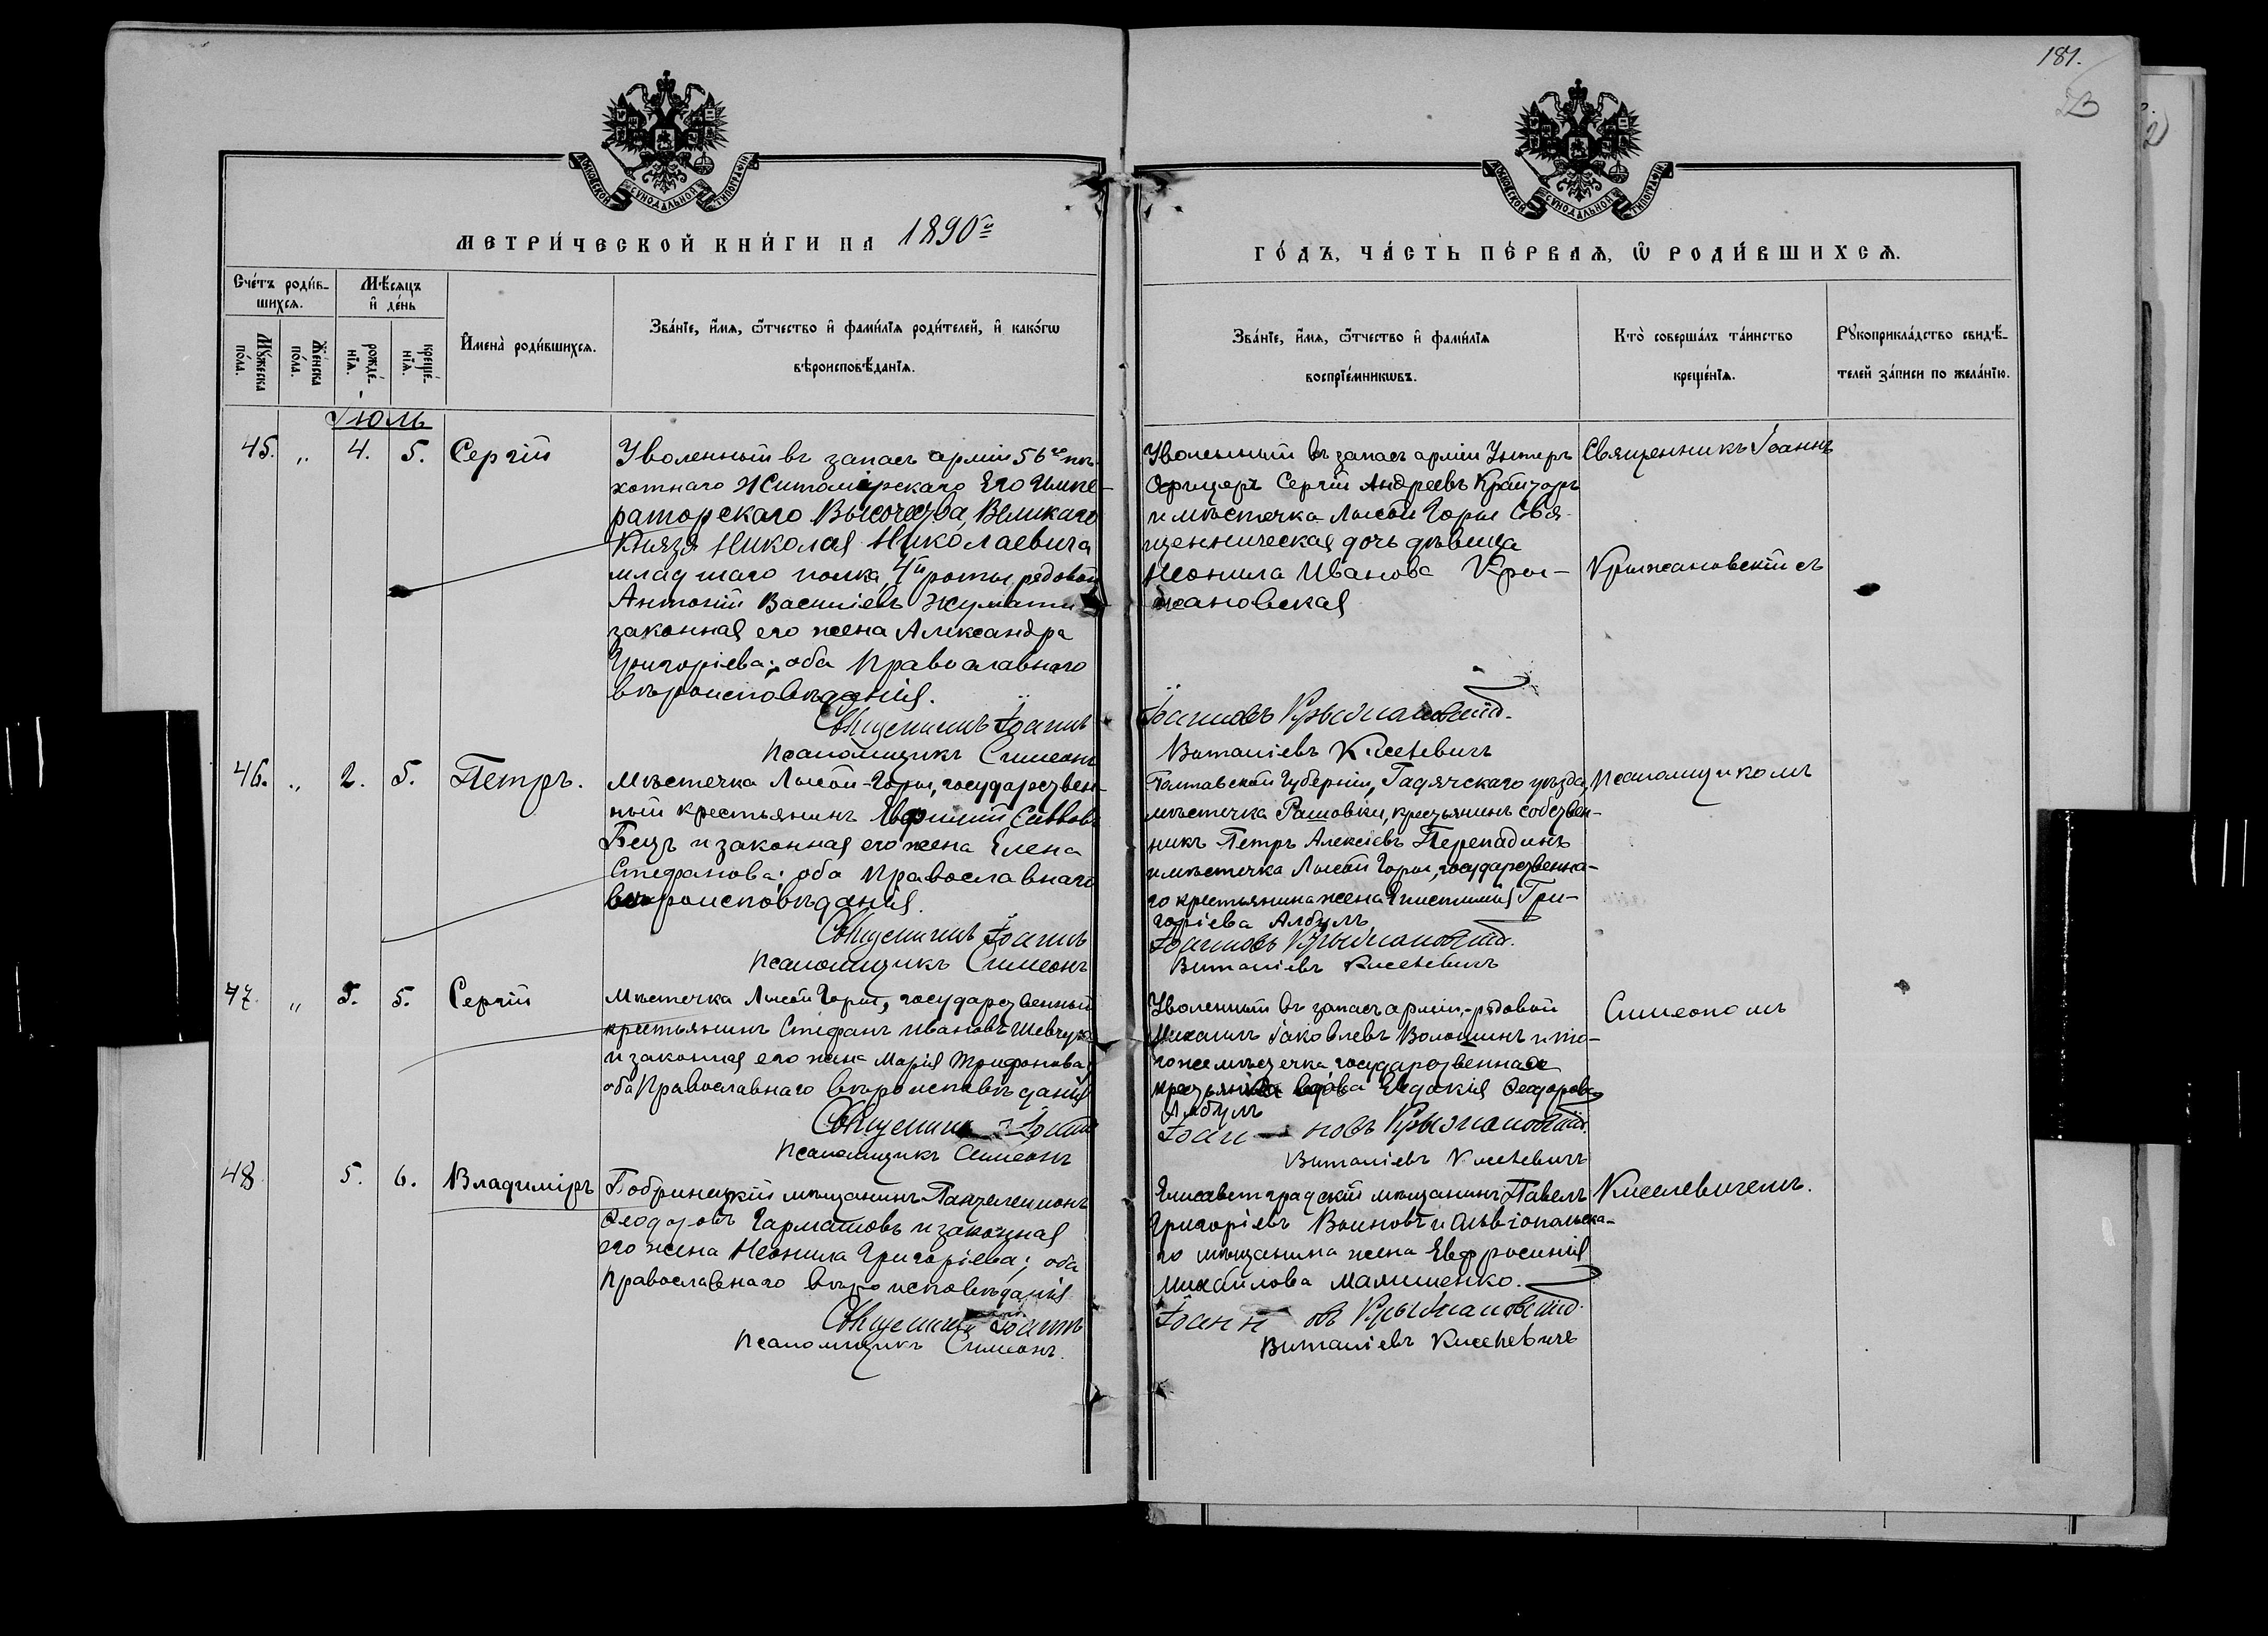 181.
МОСКОВСКОЙ СѴНОДАЛЬНОЙ ТИПОГРАФІИ
МОСКОВСКОЙ СѴНОДАЛЬНОЙ ТИПОГРАФІИ
МЕТРИ́ЧЕСКОЙ КНИ́ГИ НА 1890й
ГО́ДЪ, ЧА́СТЬ ПЕ́РВАѦ, Ѽ РОДИ́ВШИХСѦ.
Сче́тъ роди́в-
шихсѧ.
Мѣ́сѧцъ
и҆ де́нь
Мꙋ́жеска
по́ла.
Же́нска
по́ла.
рожде́-
нїѧ.
креще́-
нїѧ.
И҆мена̀ роди́вшихсѧ.
Зва́нїе, и҆́мѧ, ѻ҆́тчество и҆ фами́лїѧ роди́телей, и҆ како́гѡ
вѣроисповѣ́данїѧ.
Зва́нїе, и҆́мѧ, ѻ҆́тчество и҆ фами́лїѧ
воспрїе́мникѡвъ.
Кто̀ соверша́лъ та́инство
креще́нїѧ.
Рꙋкоприкла́дство свидѣ́-
телей за́писи по жела́нїю.
Іюль
45. „ 4. 5. Сергій
Уволенный въ запасъ арміи 56го пѣ-
хотнаго Житомірскаго Его Импе-
раторскаго Высочества, Великаго
Князя Николая Николаевича
младшаго полка, 4й роты рядовой
Антоній Василіевъ
законная его жена Александра
Григоріева; оба Православнаго
вѣроисповѣданія.
Священникъ Іоаннъ
Псаломщикъ Симеонъ
Уволенный въ запасъ арміи Унтеръ
Офицеръ Сергій Андреевъ
и мѣстечка Лысой Горы Свя-
щенническая дочь дѣвица
Неонила Иванова Кры-
жановская
Іоанновъ Крыжановскій.
Виталіевъ Киселевичъ
Священникъ Іоаннъ
Крыжановскій съ
46. „ 2. 5. Петръ.
Мѣстечка Лысой-Горы, государствен-
ный крестьянинъ Евфимій Саввовъ
и законная его жена Елена
Стефанова; оба Православнаго
вѣроисповѣданія.
Священникъ Іоаннъ
Псаломщикъ Симеонъ
Полтавской Губерніи, Гадячскаго уѣзда,
мѣстечка Рашовки, крестьянинъ собствен-
никъ Петръ Алексіевъ Перепадинъ
и мѣстечка Лысой Горы, государственна-
го крестьянина жена Епистимія Гри-
горіева Албулъ
Іоанновъ Крыжановскій.
Виталіевъ Киселевичъ
Псаломщикомъ
47. „ 5. 5. Сергій
Мѣстечка Лысой Горы, государственный
крестьянинъ Стефанъ Ивановъ Шевчукъ
и законная его жена Марія Трифонова;
оба Православнаго вѣроисповѣданія
Священникъ Іоаннъ
Псаломщикъ Симеонъ
Уволенный въ запасъ арміи,-рядовой
Михаилъ Іаковлевъ Волошинъ и то-
гоже мѣстечка, государственная
вдова Евдокія Феодорова
Албулъ
Іоан-новъ Крыжановскій.
Виталіевъ Киселевичъ
Симеономъ
48 5. 6. Владиміръ
Бобринецкій мѣщанинъ Пантелеимонъ
Феодоровъ Гармашовъ и законная
его жена Неонила Григоріева; оба
Православнаго вѣроисповѣданія
Священникъ Іоаннъ
Псаломщикъ Симеонъ.
Елисаветградскій мѣщанинъ Павелъ
Григоріевъ Воиновъ и Ольвіопольска-
го мѣщанина жена Евфросинія
Михайлова Малишенко.
Іоанновъ Крыжановскій.
Виталіевъ Киселевичъ
Киселевичемъ.